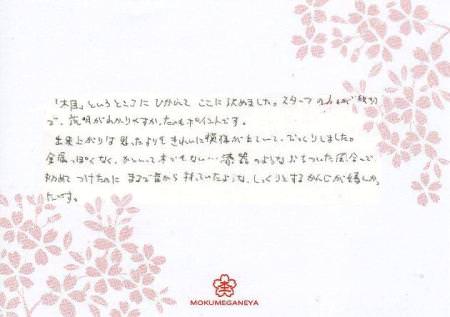 「木目」というところにひかれて ここに決めました。スタッフのみなさんが親切
で、説明がわかりやすかったのもポイントです。
出来上がりは思ったよりもきれいに模様が出ていて、びっくりしました。
金属っぽくなく、かといって木でもない…漆器のようなおちついた風合いで
初めてつけたのに まるで昔から持っていたような、しっくりとするかんじが嬉しかっ
たです。
木
MOKUMEGANEYA